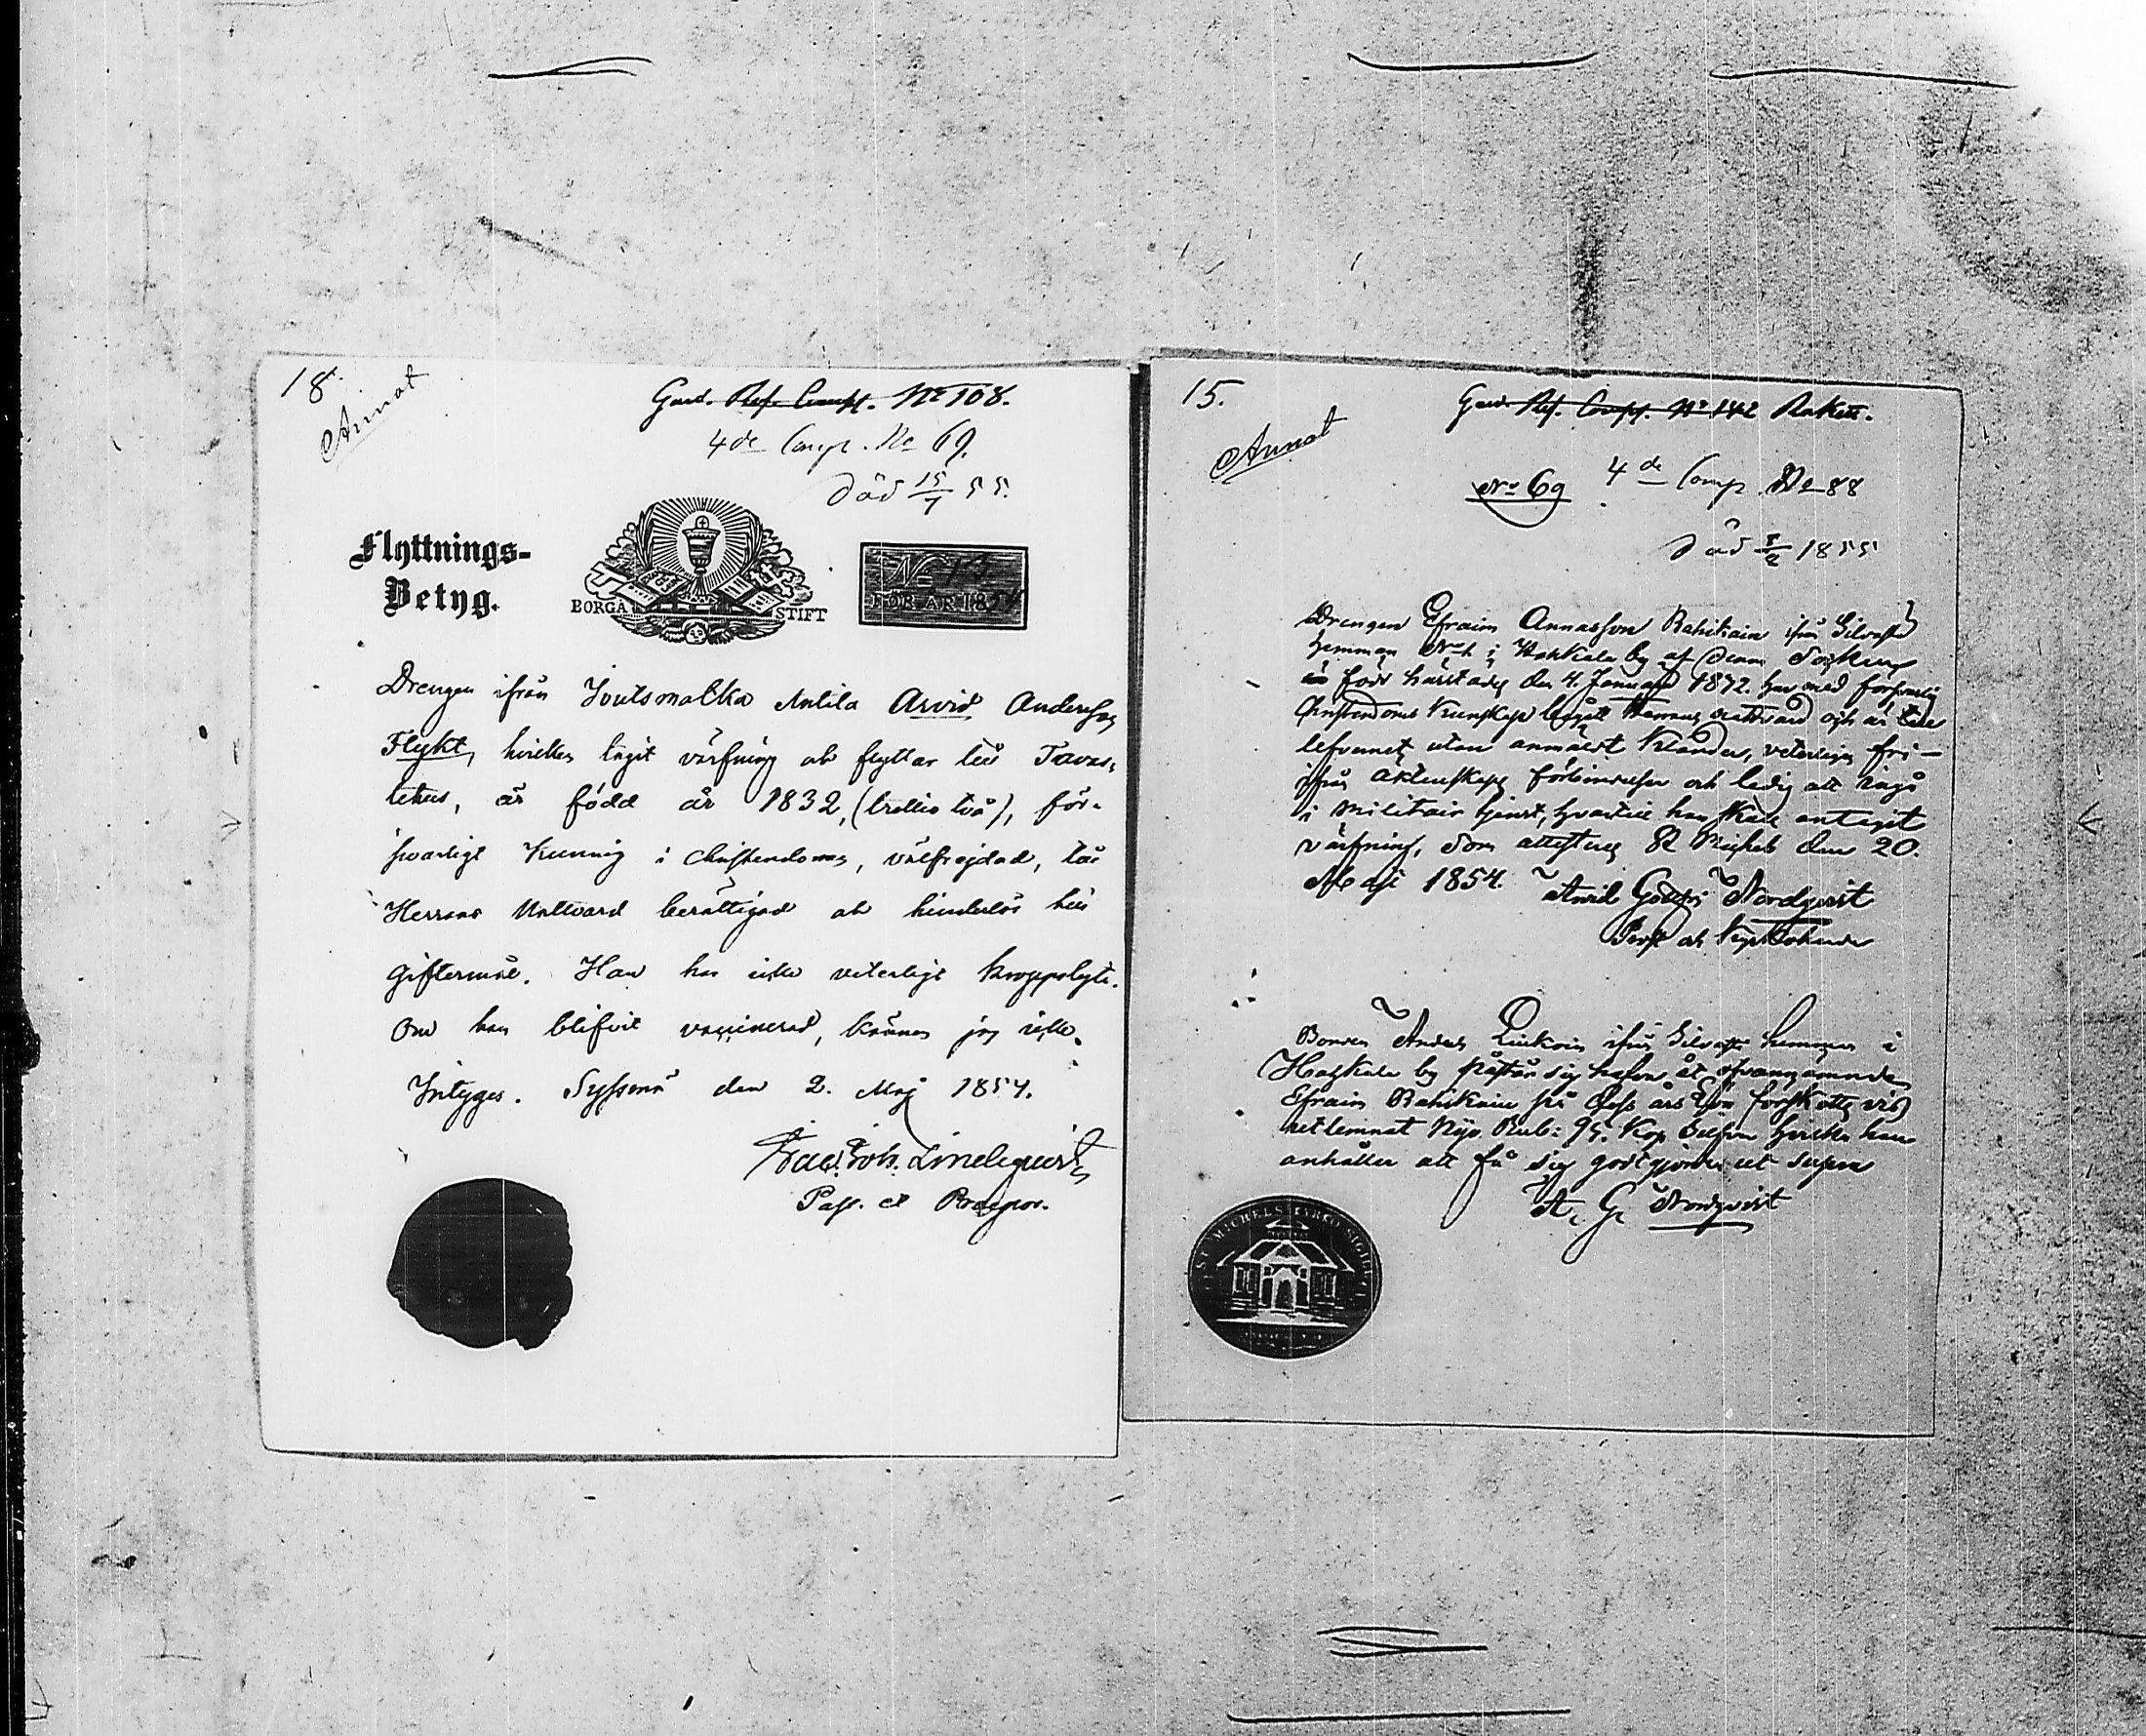 18.
Annat
Gard. Res. Comp. No 108.
4de Comp. No 69.
död 15/7 55.
Flyttnings-
Betyg.
BORGÅ STIFT
No 13
FÖR ÅR 1854
Drengen ifrån Joutsmalka Antila Arvid Andersson
Flykt, hvilken tagit värfning och flyttar till Tavas-
tehus, är född år 1832, (trettio två), för-
svarligt kunnig i christendomen, välfrejdad, till
Herrans Nattvard berättigad och hinderlös till
giftermål. Han har icke veterligt kroppslyte.
Om han blifvit vaccinerad, känner jag icke.
Intygas. Sysmä den 2. Maj 1854.
Jac. Joh. Lindequist,
Past. et Praepos.
15.
Annat
Gard. Res. Comp. No 142 Rakett.
No 69 4de Comp No 88
död 1855
Drengen Efraim Annasson Rahikain ifrån
hemman No 2 i by af denna Socken
är född härstädes den 4. Januari 1832. har med försvarlig
Christendoms kunskap begått Herrans nattvard och är till
lefvernet utan anmäldt klander, veterligen fri-
ifrån äktenskaps förbindelser och ledig att ingå
i militair tjenst, hvartill han skall antagit
värfning, som attesteras St Michels den 20.
Maji 1854. Arvid Gottfr. Nordqvist
Prost och Kyrkoherde
Bonden Anders ifrån hemman i
by påstår sig hafva åt ofvannämnde
Efraim Rahikain på dess års lön förskottsvis
utlemnat Nije Rub: 95. Kop Silfver hvilka han
anhåller att få sig godtgjorde ut supra
A. G. Nordqvist
ST MICHELS KYRKO SIGILL